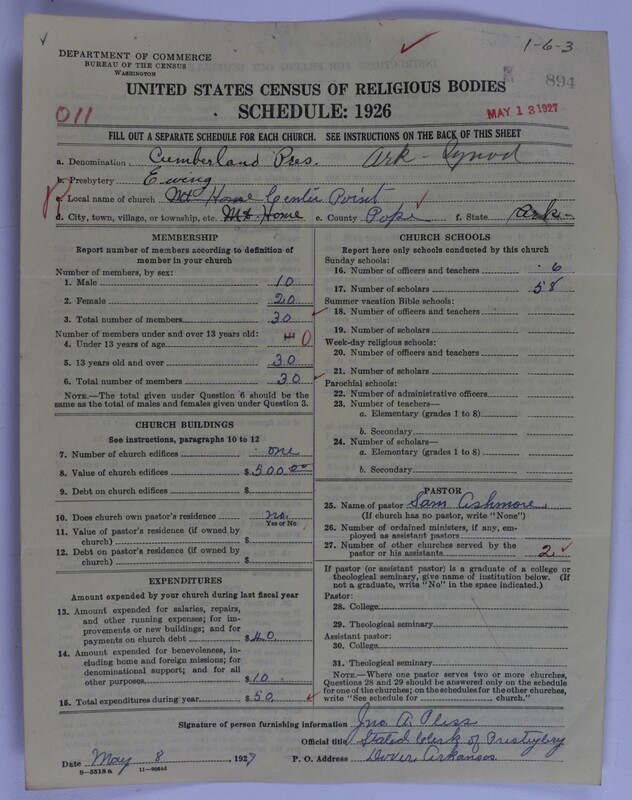 1-6-3
DEPARTMENT OF COMMERCE
BUREAU OF THE CENSUS
WASHINGTON
894
UNITED STATES CENSUS OF RELIGIOUS BODIES
SCHEDULE: 1926
011
MAY 13 1927
FILL OUT A SEPARATE SCHEDULE FOR EACH CHURCH. SEE INSTRUCTIONS ON THE BACK OF THIS SHEET
a. Denomination Cumberland Pres. Ark - Synod
b. Presbytery Ewing
c. Local name of church Mt Home Center Point
d. City, town, village, or township, etc. Mt. Home e. County Pope f. State Ark-
MEMBERSHIP
Report number of members according to definition of
member in your church
Number of members, by sex:
1. Male 10
2. Female 20
3. Total number of members 30
Number of members under and over 13 years old:
4. Under 13 years of age 0
5. 13 years old and over 30
6. Total number of members 30
NOTE.—The total given under Question 6 should be
the same as the total of males and females given under Question 3.
CHURCH BUILDINGS
See instructions, paragraphs 10 to 12
7. Number of church edifices one
8. Value of church edifices $ 500.00
9. Debt on church edifices $
10. Does church own pastor's residence? no.
Yes or No
11. Value of pastor's residence (if owned by
church) $
12. Debt on pastor's residence (if owned by
church) $
EXPENDITURES
Amount expended by your church during last fiscal year
13. Amount expended for salaries, repairs,
and other running expenses; for im-
provements or new buildings; and for
payments on church debt $ 40.
14. Amount expended for benevolences, in-
cluding home and foreign missions; for
denominational support; and for all
other purposes $ 10.
15. Total expenditures during year $ 50.
CHURCH SCHOOLS
Report here only schools conducted by this church
Sunday schools:
16. Number of officers and teachers 6
17. Number of scholars 58
Summer vacation Bible schools:
18. Number of officers and teachers
19. Number of scholars
Week-day religious schools:
20. Number of officers and teachers
21. Number of scholars
Parochial schools:
22. Number of administrative officers
23. Number of teachers—
a. Elementary (grades 1 to 8)
b. Secondary
24. Number of scholars—
a. Elementary (grades 1 to 8)
b. Secondary
PASTOR
25. Name of pastor Sam Ashmore
(If church has no pastor, write "None")
26. Number of ordained ministers, if any, em-
ployed as assistant pastors
27. Number of other churches served by the
pastor or his assistants 2
If pastor (or assistant pastor) is a graduate of a college or
theological seminary, give name of institution below. (If
not a graduate, write "No" in the space indicated.)
Pastor:
28. College
29. Theological seminary
Assistant pastor:
30. College
31. Theological seminary
NOTE.—Where one pastor serves two or more churches,
Questions 28 and 29 should be answered only on the schedule
for one of the churches; on the schedules for the other churches,
write "See schedule for church."
Signature of person furnishing information Jno. A. Pliss
Official title Stated Clerk of Presbytery
Date May 8, 1927 P. O. Address Dover Arkansas
8-5518a